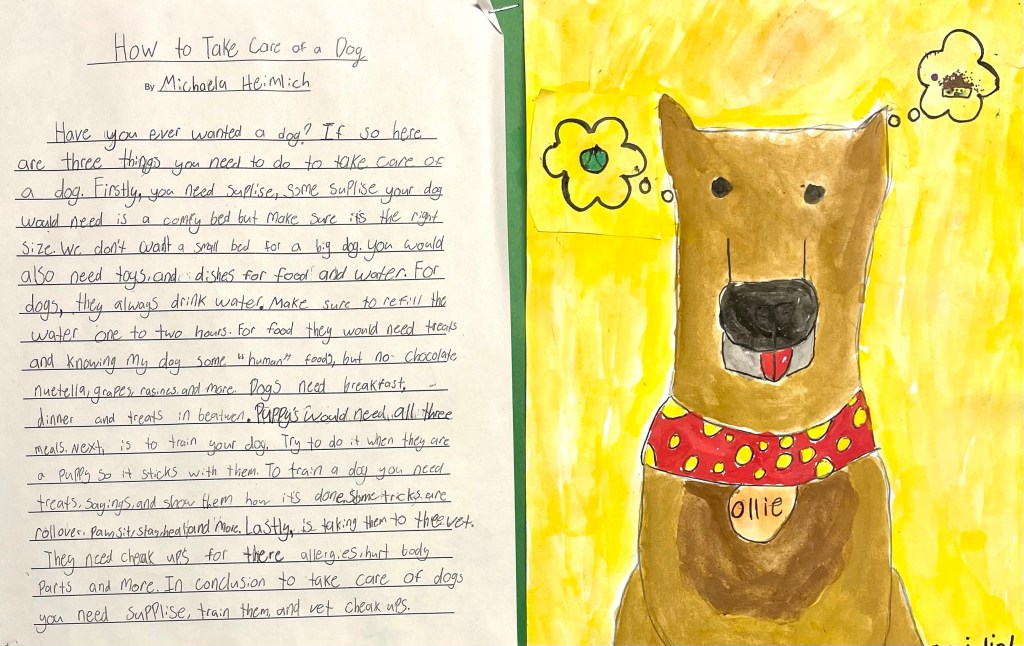 How to Take Care of a Dog
By Michaela Heimlich
Have you ever wanted a dog? If so here
are three things you need to do to take care of
a dog. Firstly, you need suplise, some suplise your dog
would need is a comfy bed but make sure it's the right
size. We don't want a small bed for a big dog. you would
also need toys, and dishes for food and water. For
dogs, they always drink water. Make sure to refill the
water one to two hours. For food they would need treats
and knowing my dog some "human" foods, but no chocolate
nuetella, grapes, rasines, and more. Dogs need breakfast,
dinner and treats in beatwen. Puppys would need all three
meals. Next, is to train your dog. Try to do it when they are
a puppy so it sticks with them. To train a dog you need
treats, sayings, and show them how it's done. Some tricks are
rollover, paw, sit, stay, heal, and more. Lastly, is taking them to the vet.
They need cheak ups for there allergies, hurt body
parts and more. In conclusion to take care of dogs
you need supplise, train them, and vet cheak ups.
ollie